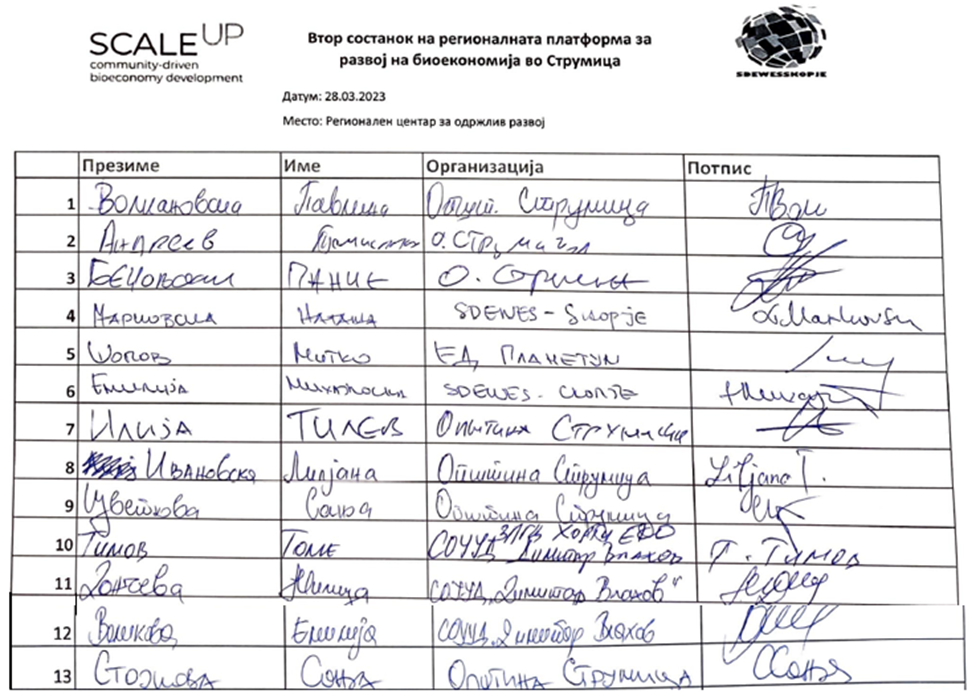 SCALE UP
community-driven
bioeconomy development
Втор состанок на регионалната платформа за
развој на биоекономија во Струмица
SDEWESSKOPJE
Датум: 28.03.2023
Место: Регионален центар за одржлив развој
Презиме Име Организација Потпис
1 Павлина Општ. Струмица
2 Андреев
3 ПАНЧЕ
4 Марковска Наташа SDEWES-Skopje
5 Шопов Митко ЕД ПЛАНЕТУМ
6 Емилија SDEWES-
7 ИЛИЈА ТИЛЕВ Општина СТРУМИЦА
8 Ивановска Лилјана Општина Струмица Liljana I.
9 Цветкова Соња Општина Струмица
10 Тимов Томе СОУУД Димитар Влахов Т. Тимов
11 СОУУД „Димитар Влахов"
12 Емилија СОУУД Димитар Влахов
13 Стојкова Соња Општина Струмица